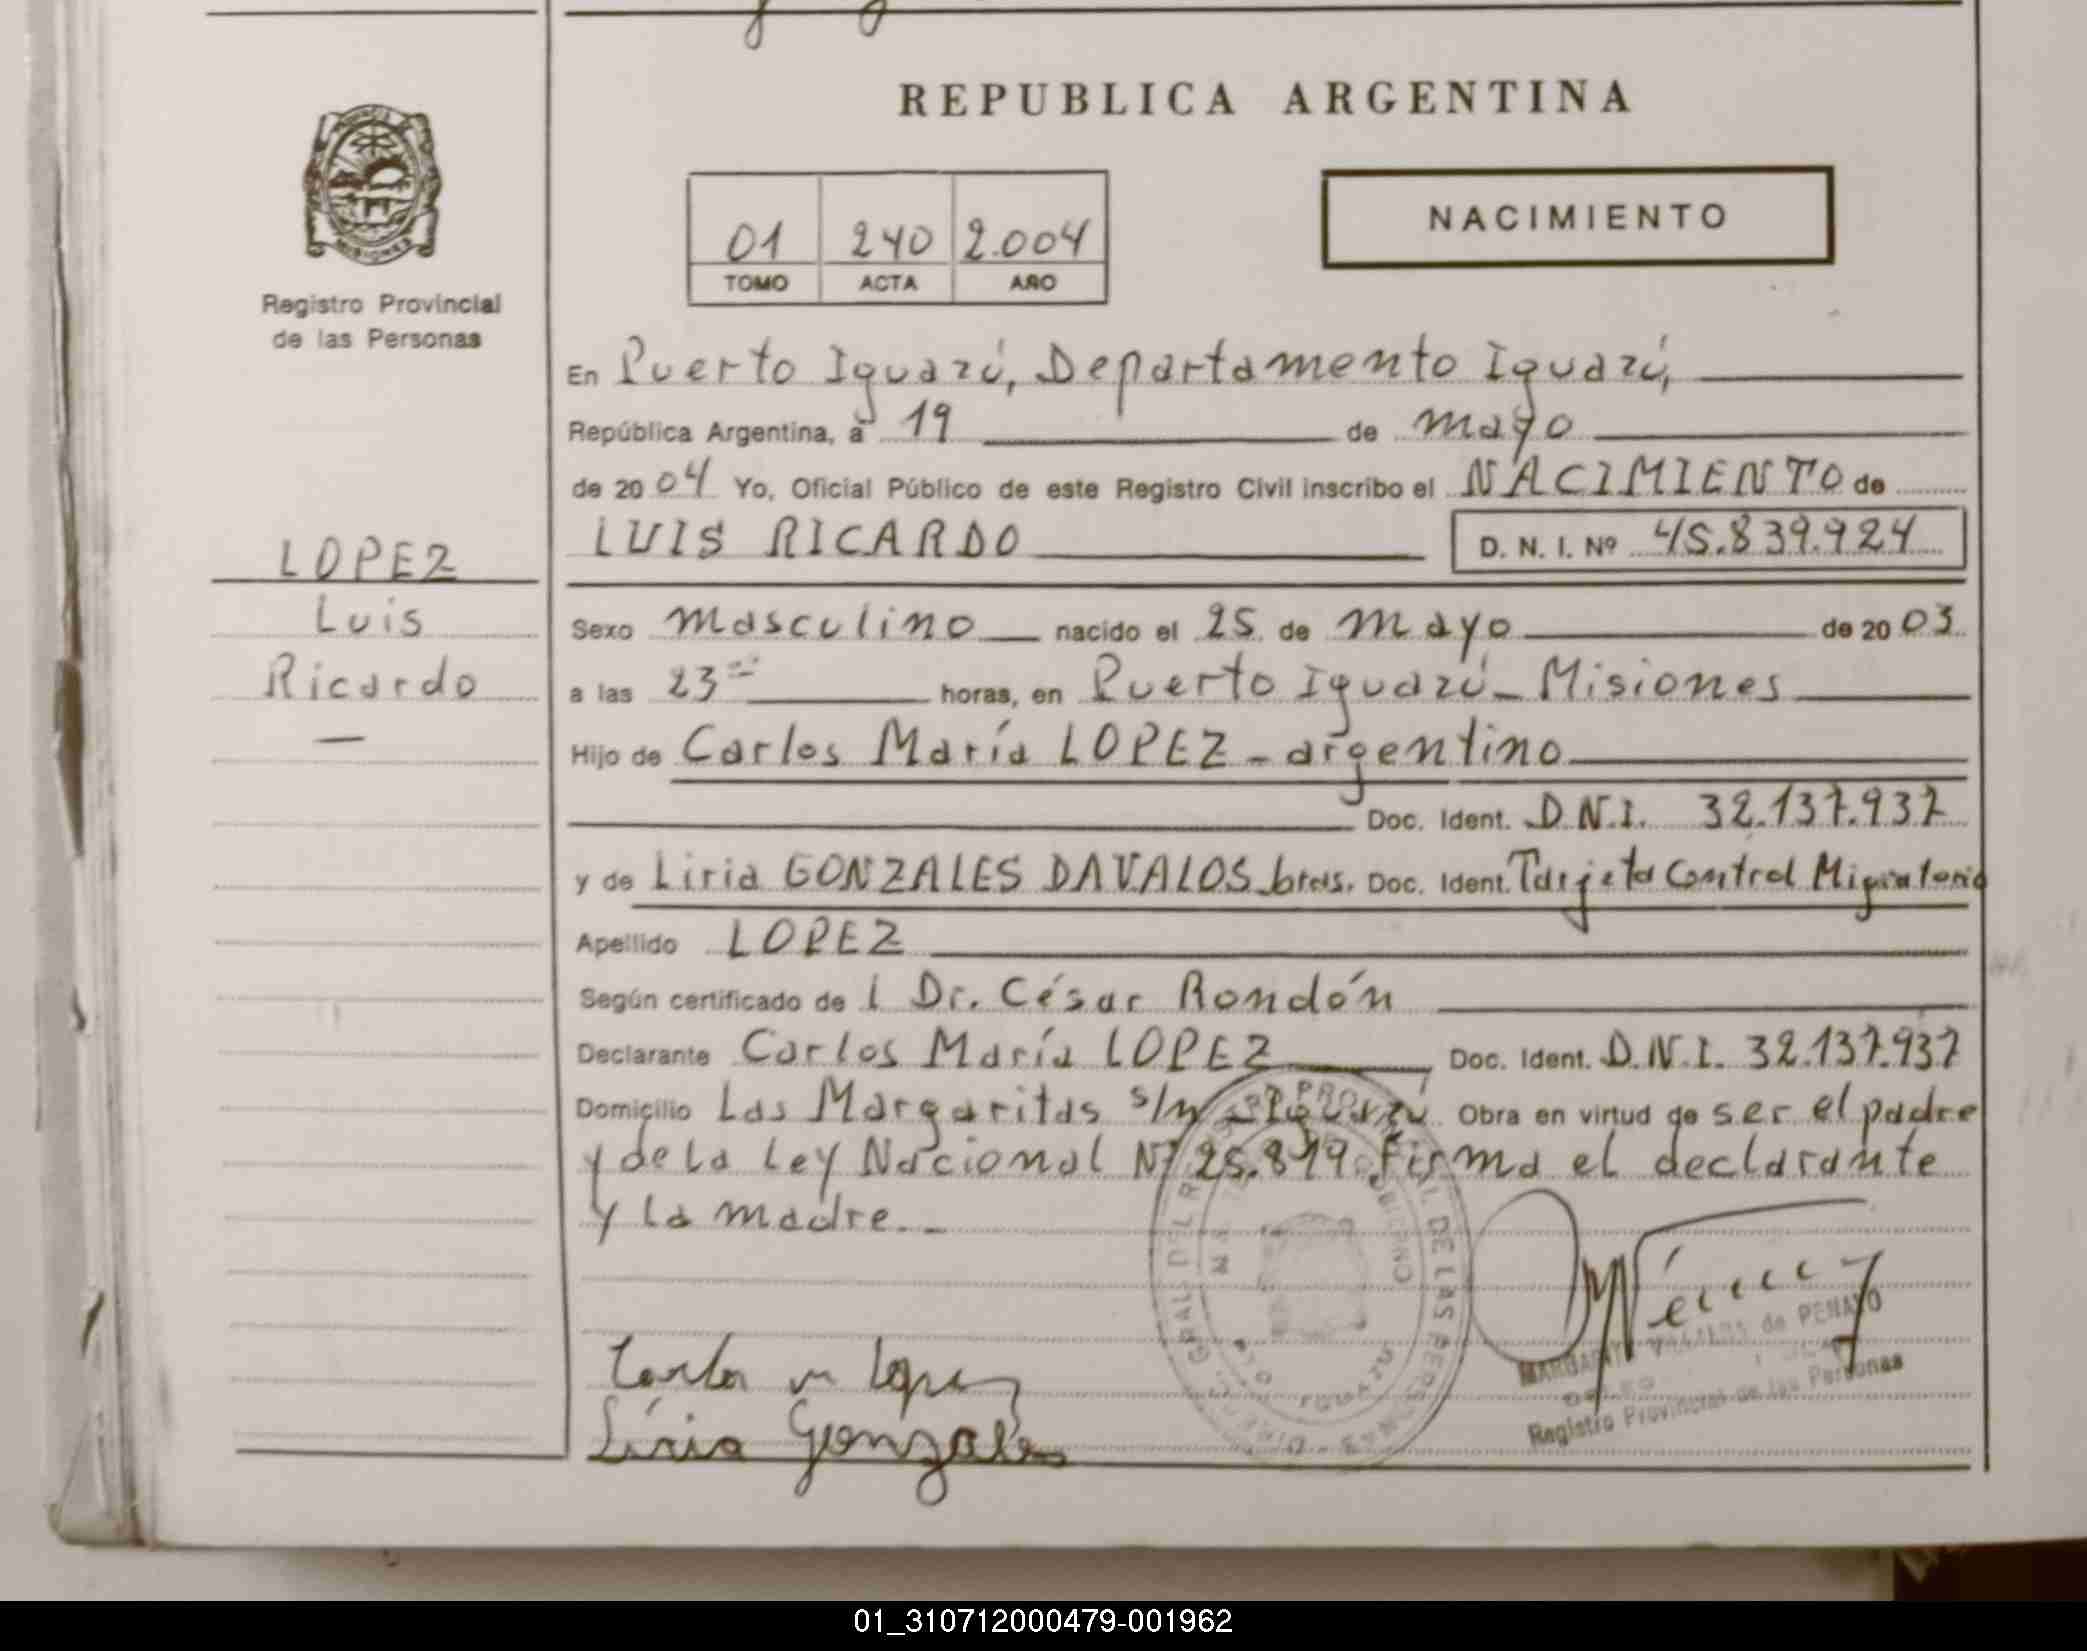 REPUBLICA ARGENTINA
NACIMIENTO
01 240 2.004
TOMO ACTA AÑO
Registro Provincial
de las Personas
En Puerto Iguazú, Departamento Iguazú,
República Argentina, a 19 de mayo
de 2004 Yo, Oficial Público de este Registro Civil inscribo el NACIMIENTO de
LUIS RICARDO D. N. I. Nº 45.839.924
LOPEZ
Luis
Ricardo
Sexo masculino nacido el 25 de mayo de 2003
a las 23 horas, en Puerto Iguazú - Misiones
Hijo de Carlos María LOPEZ - argentino
Doc. Ident. D.N.I. 32.137.937
y de Liria GONZALES DAVALOS bras. Doc. Ident. Tarjeta Control Migratorio
Apellido LOPEZ
Según certificado de l Dr. César Rondón
Declarante Carlos María LOPEZ Doc. Ident. D.N.I. 32.137.937
Domicilio Las Margaritas s/n - Iguazú Obra en virtud de ser el padre
y de la Ley Nacional Nº 25.819. Firma el declarante
y la madre. -
Carlos m Lopez
Liria Gonzales
MARGARITA VILLALBA de PENAYO
Registro Provincial de las Personas
01_310712000479-001962